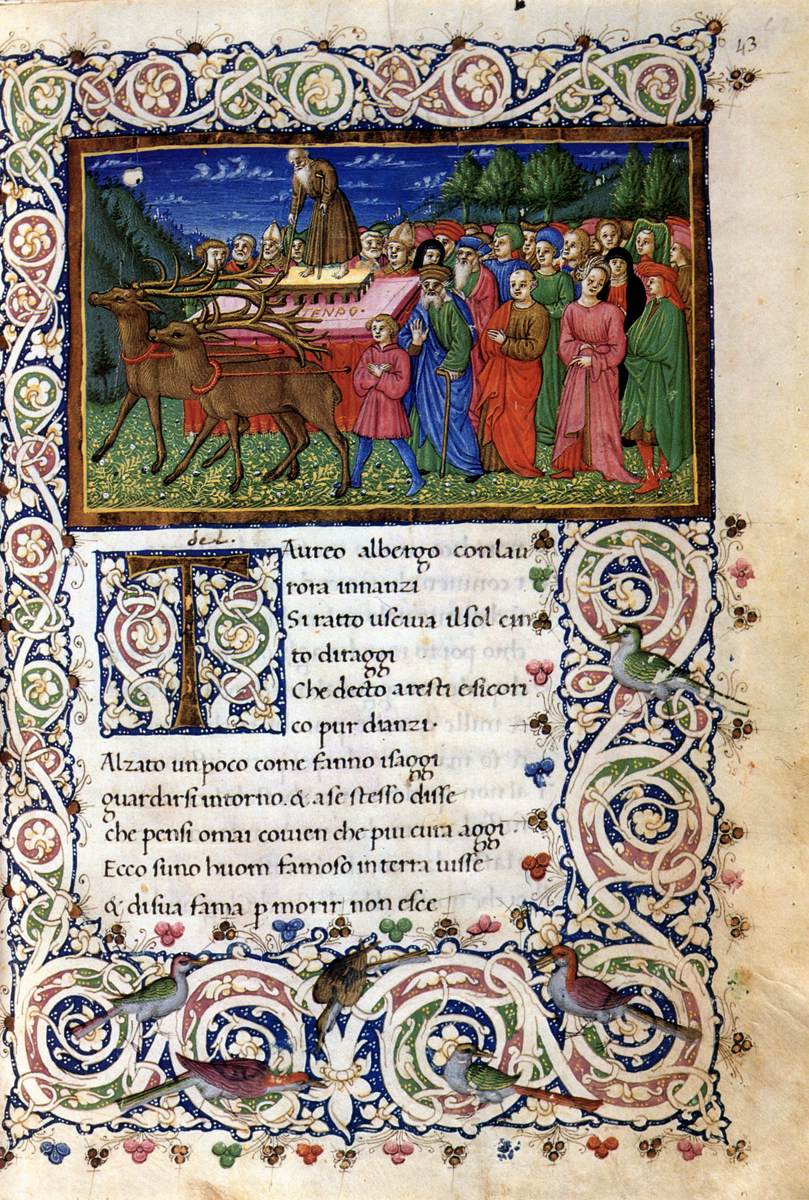 43
TENPO·
del.
TAureo albergo conlau
rora innanzi
Si ratto usciua ilsol cin
to diraggi
Che decto aresti esicori
co pur dianzi·
Alzato un poco come fanno isaggi
guardarsi intorno. & ase stesso disse
che pensi omai conuen che piu cura aggi
Ecco suno huom famoso in terra uisse
& disua fama p morir non esce